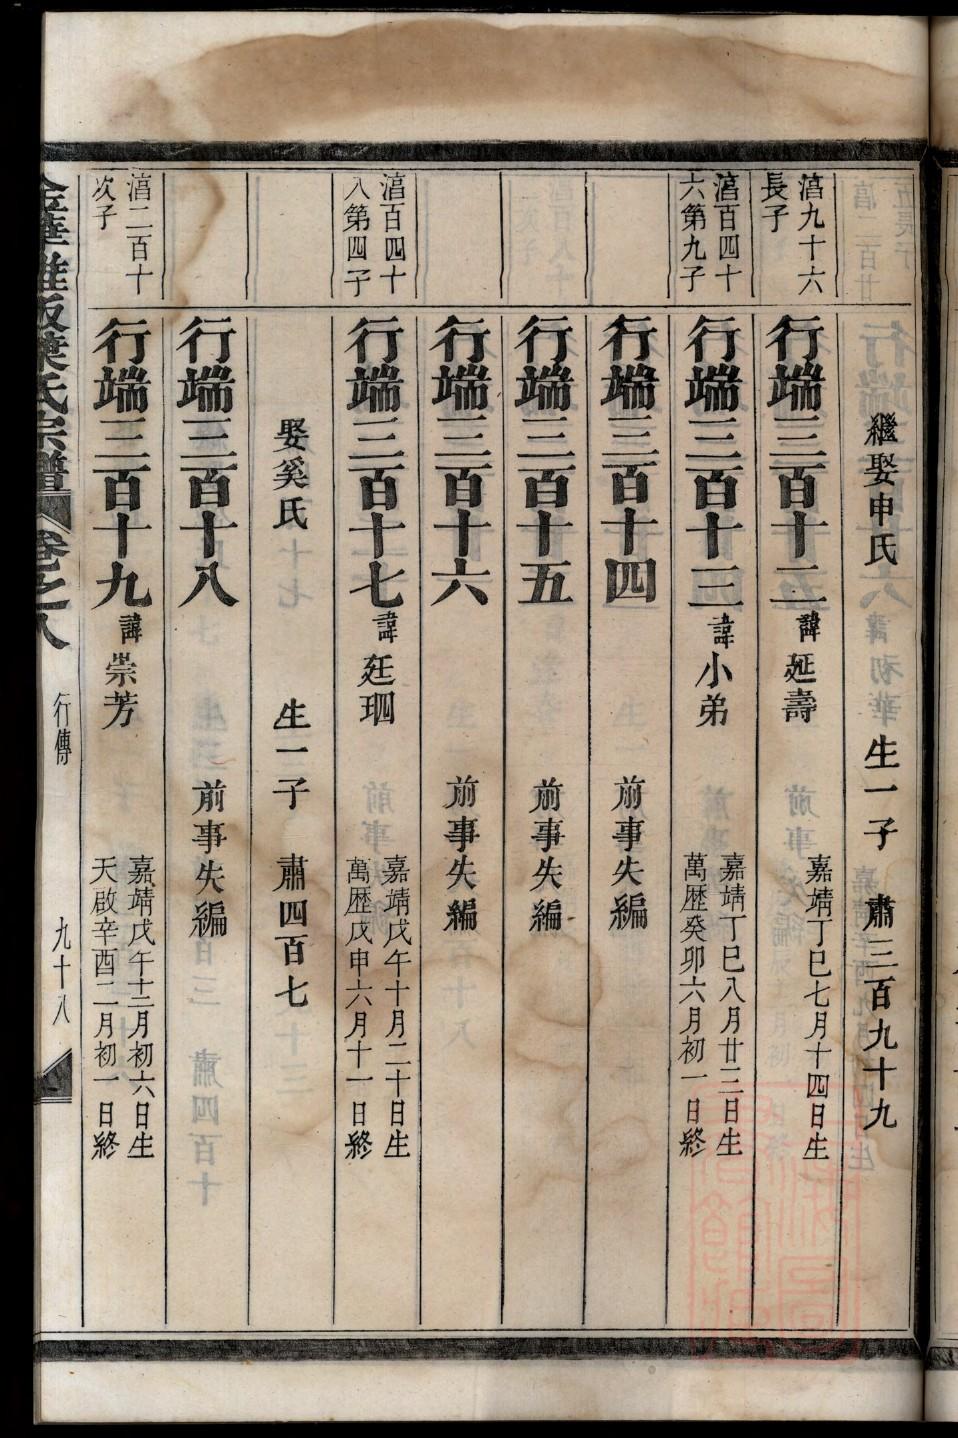 繼娶申氏 生一子 肅三百九十九
湻九十六
長子
行端三百十二 諱延壽 嘉靖丁巳七月十四日生
湻百四十
六第九子
行端三百十三 諱小弟
嘉靖丁巳八月廿三日生
萬歷癸卯六月初一日終
行端三百十四 前事失編
行端三百十五 前事失編
行端三百十六 前事失編
湻百四十
八第四子
行端三百十七 諱廷珋
嘉靖戊午十月二十日生
萬歷戊申六月十一日終
娶奚氏 生一子 肅四百七
行端三百十八 前事失編
湻二百十
次子
行端三百十九 諱崇芳
嘉靖戊午十二月初六日生
天啟辛酉二月初一日終
金華雅畈葉氏宗譜 卷之八 行傳 九十八